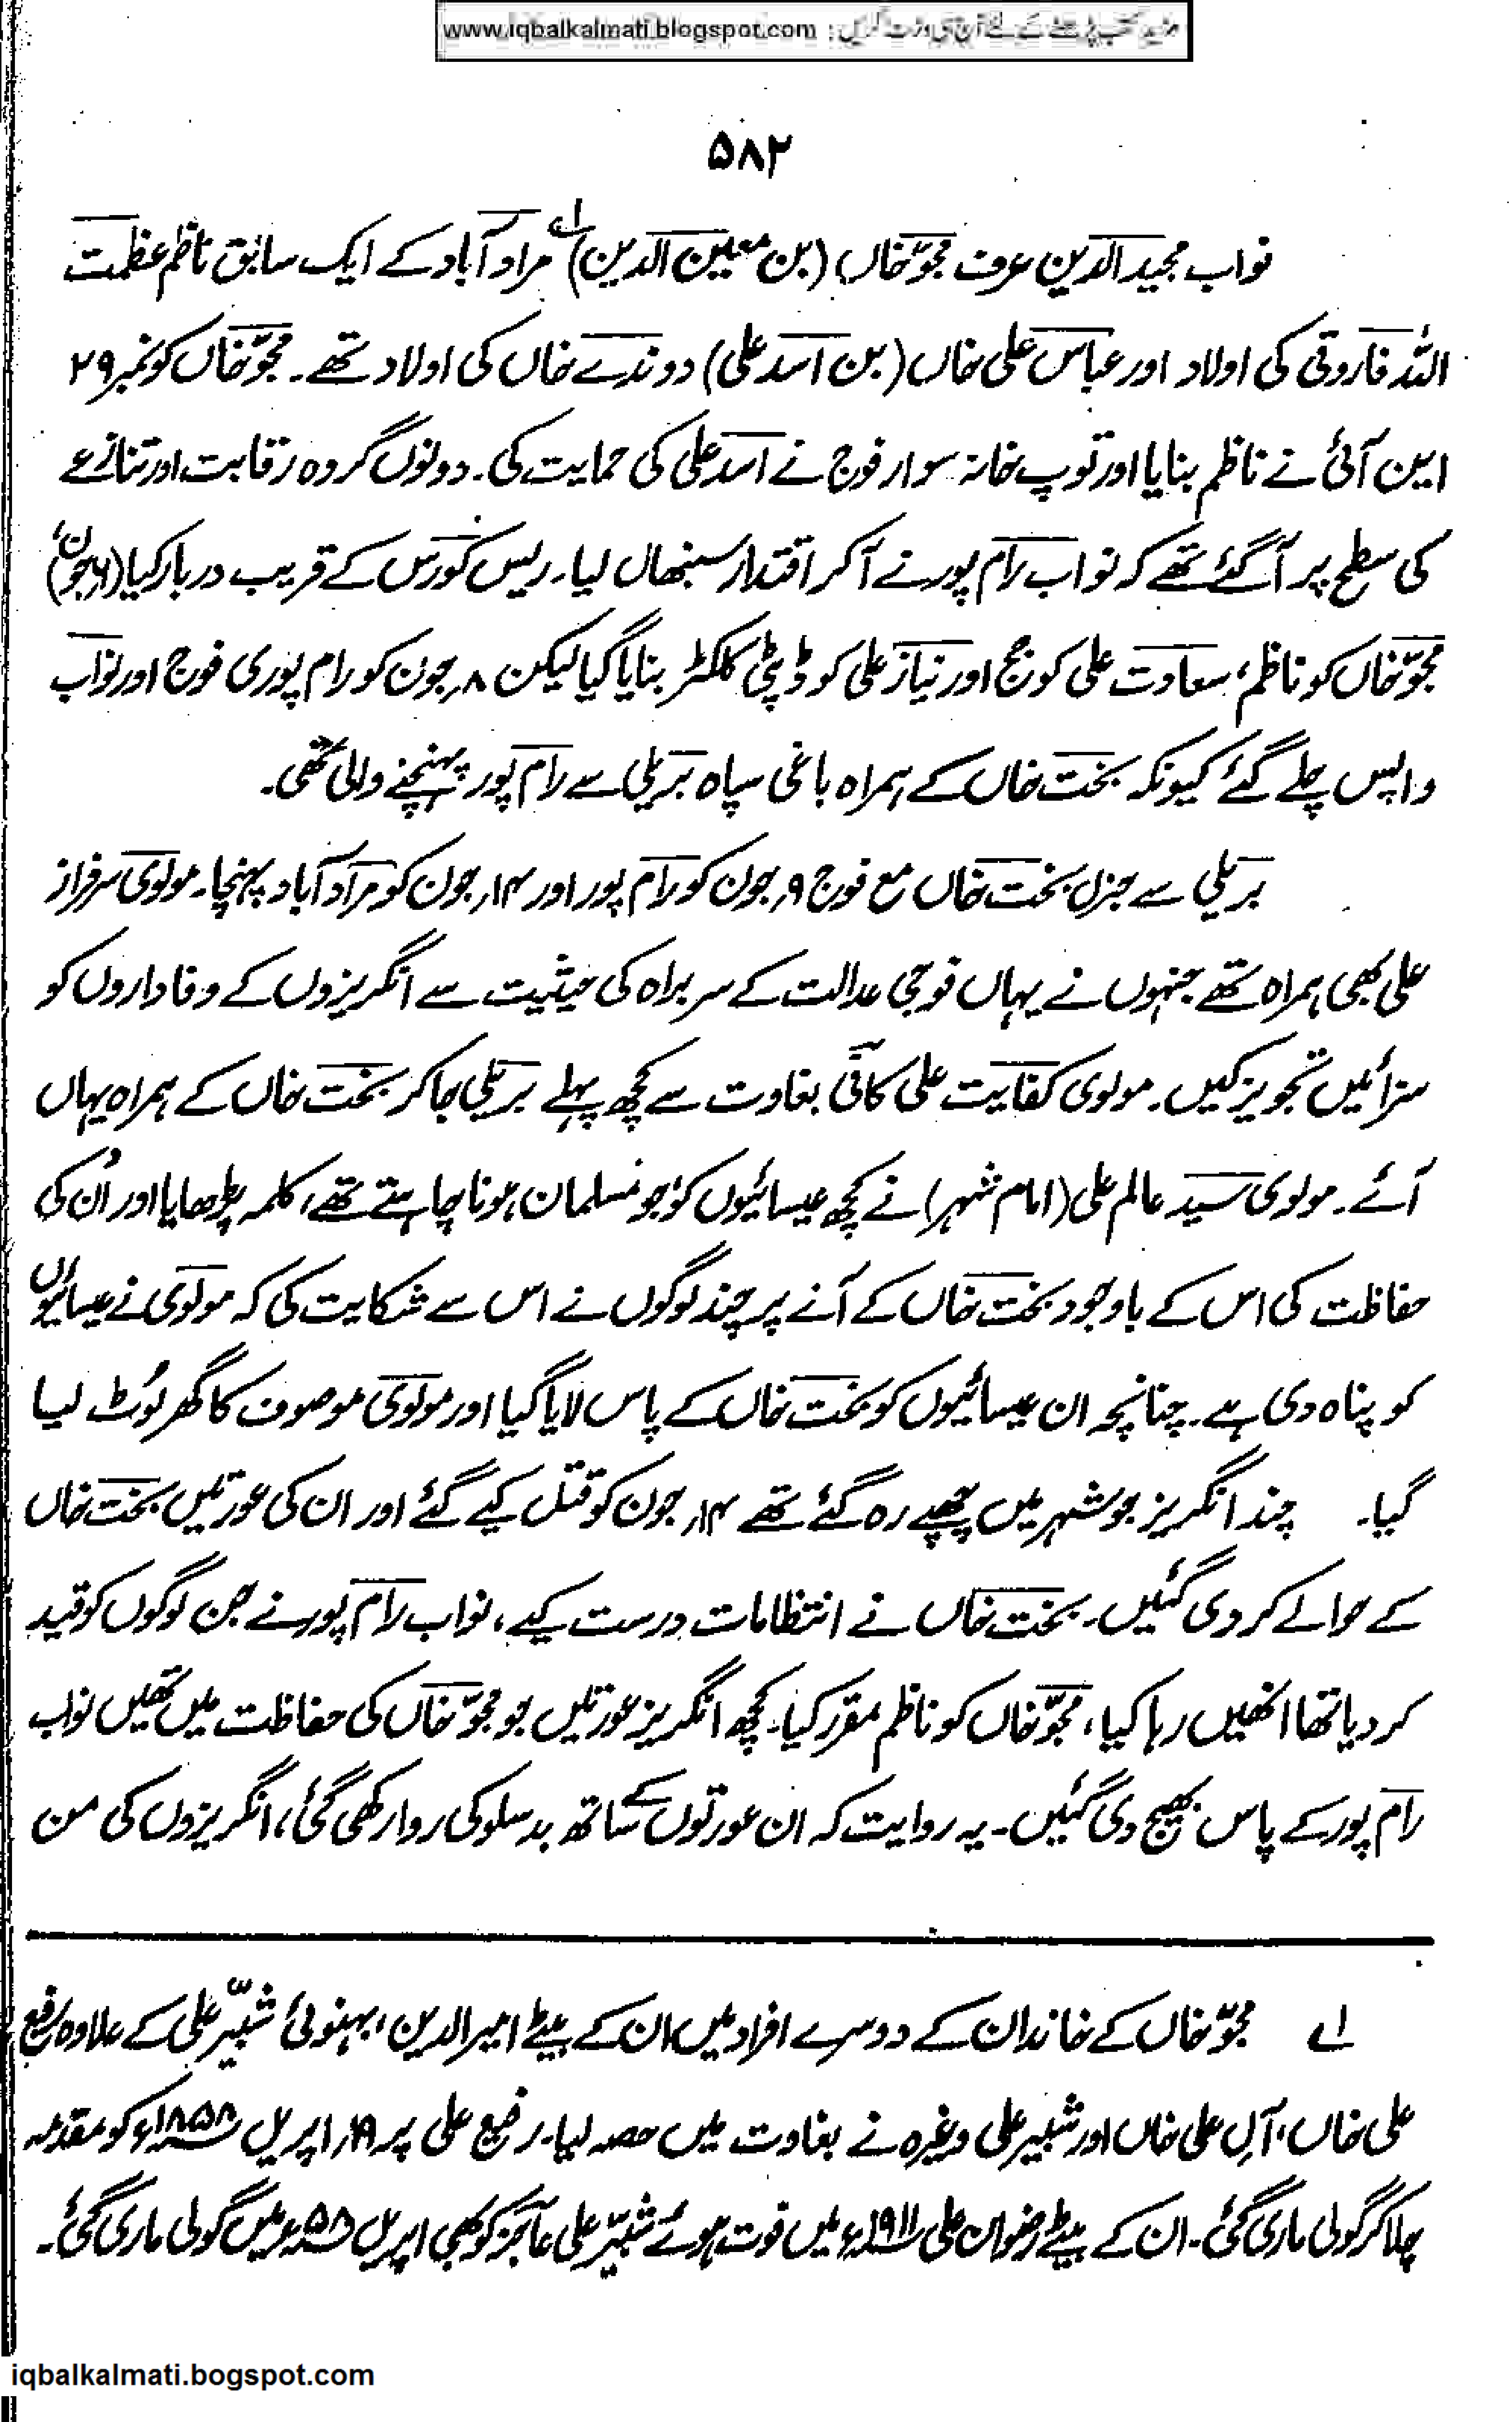 www.iqbalkalmati.blogspot.com : مزید کتب پڑھنے کے لئے آج ہی وزٹ کریں
۵۸۲
نواب مجید الدین عرف مجوّ خاں (بن معین الدین)؂۱ مراد آباد کے ایک سابق ناظم عظمت
اللہ فاروقی کی اولاد اور عباس علی خاں (بن اسد علی) دوندے خاں کی اولاد تھے۔ مجوّ خاں کو نمبر ۲۹
این آئی نے ناظم بنایا اور توپ خانہ سوار فوج نے اسد علی کی حمایت کی۔ دونوں گروہ رقابت اور تنازعے
کی سطح پر آگئے تھے کہ نواب رام پور نے آکر اقتدار سنبھال لیا۔ ریس کورس کے قریب دربار کیا (۶؍جون)،
مجوّ خاں کو ناظم، سعادت علی کو جج اور نیاز علی کو ڈپٹی کلکٹر بنایا گیا لیکن ۸؍جون کو رام پوری فوج اور نواب
واپس چلے گئے کیونکہ بخت خاں کے ہمراہ باغی سپاہ بریلی سے رام پور پہنچنے والی تھی۔
بریلی سے جنرل بخت خاں مع فوج ۹؍جون کو رام پور اور ۱۴؍جون کو مراد آباد پہنچا۔ مولوی سرفراز
علی بھی ہمراہ تھے جنہوں نے یہاں فوجی عدالت کے سربراہ کی حیثیت سے انگریزوں کے وفاداروں کو
سزائیں تجویز کیں۔ مولوی کفایت علی کافی بغاوت سے کچھ پہلے بریلی جاکر بخت خاں کے ہمراہ یہاں
آئے۔ مولوی سید عالم علی (امام شہر) نے کچھ عیسائیوں کو جو مسلمان ہونا چاہتے تھے، کلمہ پڑھایا اور اُن کی
حفاظت کی اس کے باوجود بخت خاں کے آنے پر چند لوگوں نے اس سے شکایت کی کہ مولوی نے عیسائیوں
کو پناہ دی ہے۔ چنانچہ ان عیسائیوں کو بخت خاں کے پاس لایا گیا اور مولوی موصوف کا گھر لوُٹ لیا
گیا۔ چند انگریز جو شہر میں چھپے رہ گئے تھے ۱۴؍جون کو قتل کیے گئے اور ان کی عورتیں بخت خاں
کے حوالے کر دی گئیں۔ بخت خاں نے انتظامات درست کیے، نواب رام پور نے جن لوگوں کو قید
کر دیا تھا انھیں رہا کیا، مجوّ خاں کو ناظم مقرر کیا۔ کچھ انگریز عورتیں جو مجوّ خاں کی حفاظت میں تھیں نواب
رام پور کے پاس بھیج دی گئیں۔ یہ روایت کہ ان عورتوں کے ساتھ بدسلوکی روا رکھی گئی، انگریزوں کی من
؂۱ مجوّ خاں کے خاندان کے دوسرے افراد میں ان کے بیٹے امیر الدین، بہنوئی شبیّر علی کے علاوہ رفیع
علی خاں، آلِ علی خاں اور شبیر علی وغیرہ نے بغاوت میں حصہ لیا۔ رفیع علی پر ۲۹؍اپریل ۱۸۵۸ء کو مقدمہ
چلاکر گولی ماری گئی۔ ان کے بیٹے رضوان علی ۱۹۱۱ء میں فوت ہوئے شبیّر علی عاجز کو بھی اپریل ۵۸ء میں گولی ماری گئی۔
iqbalkalmati.bogspot.com